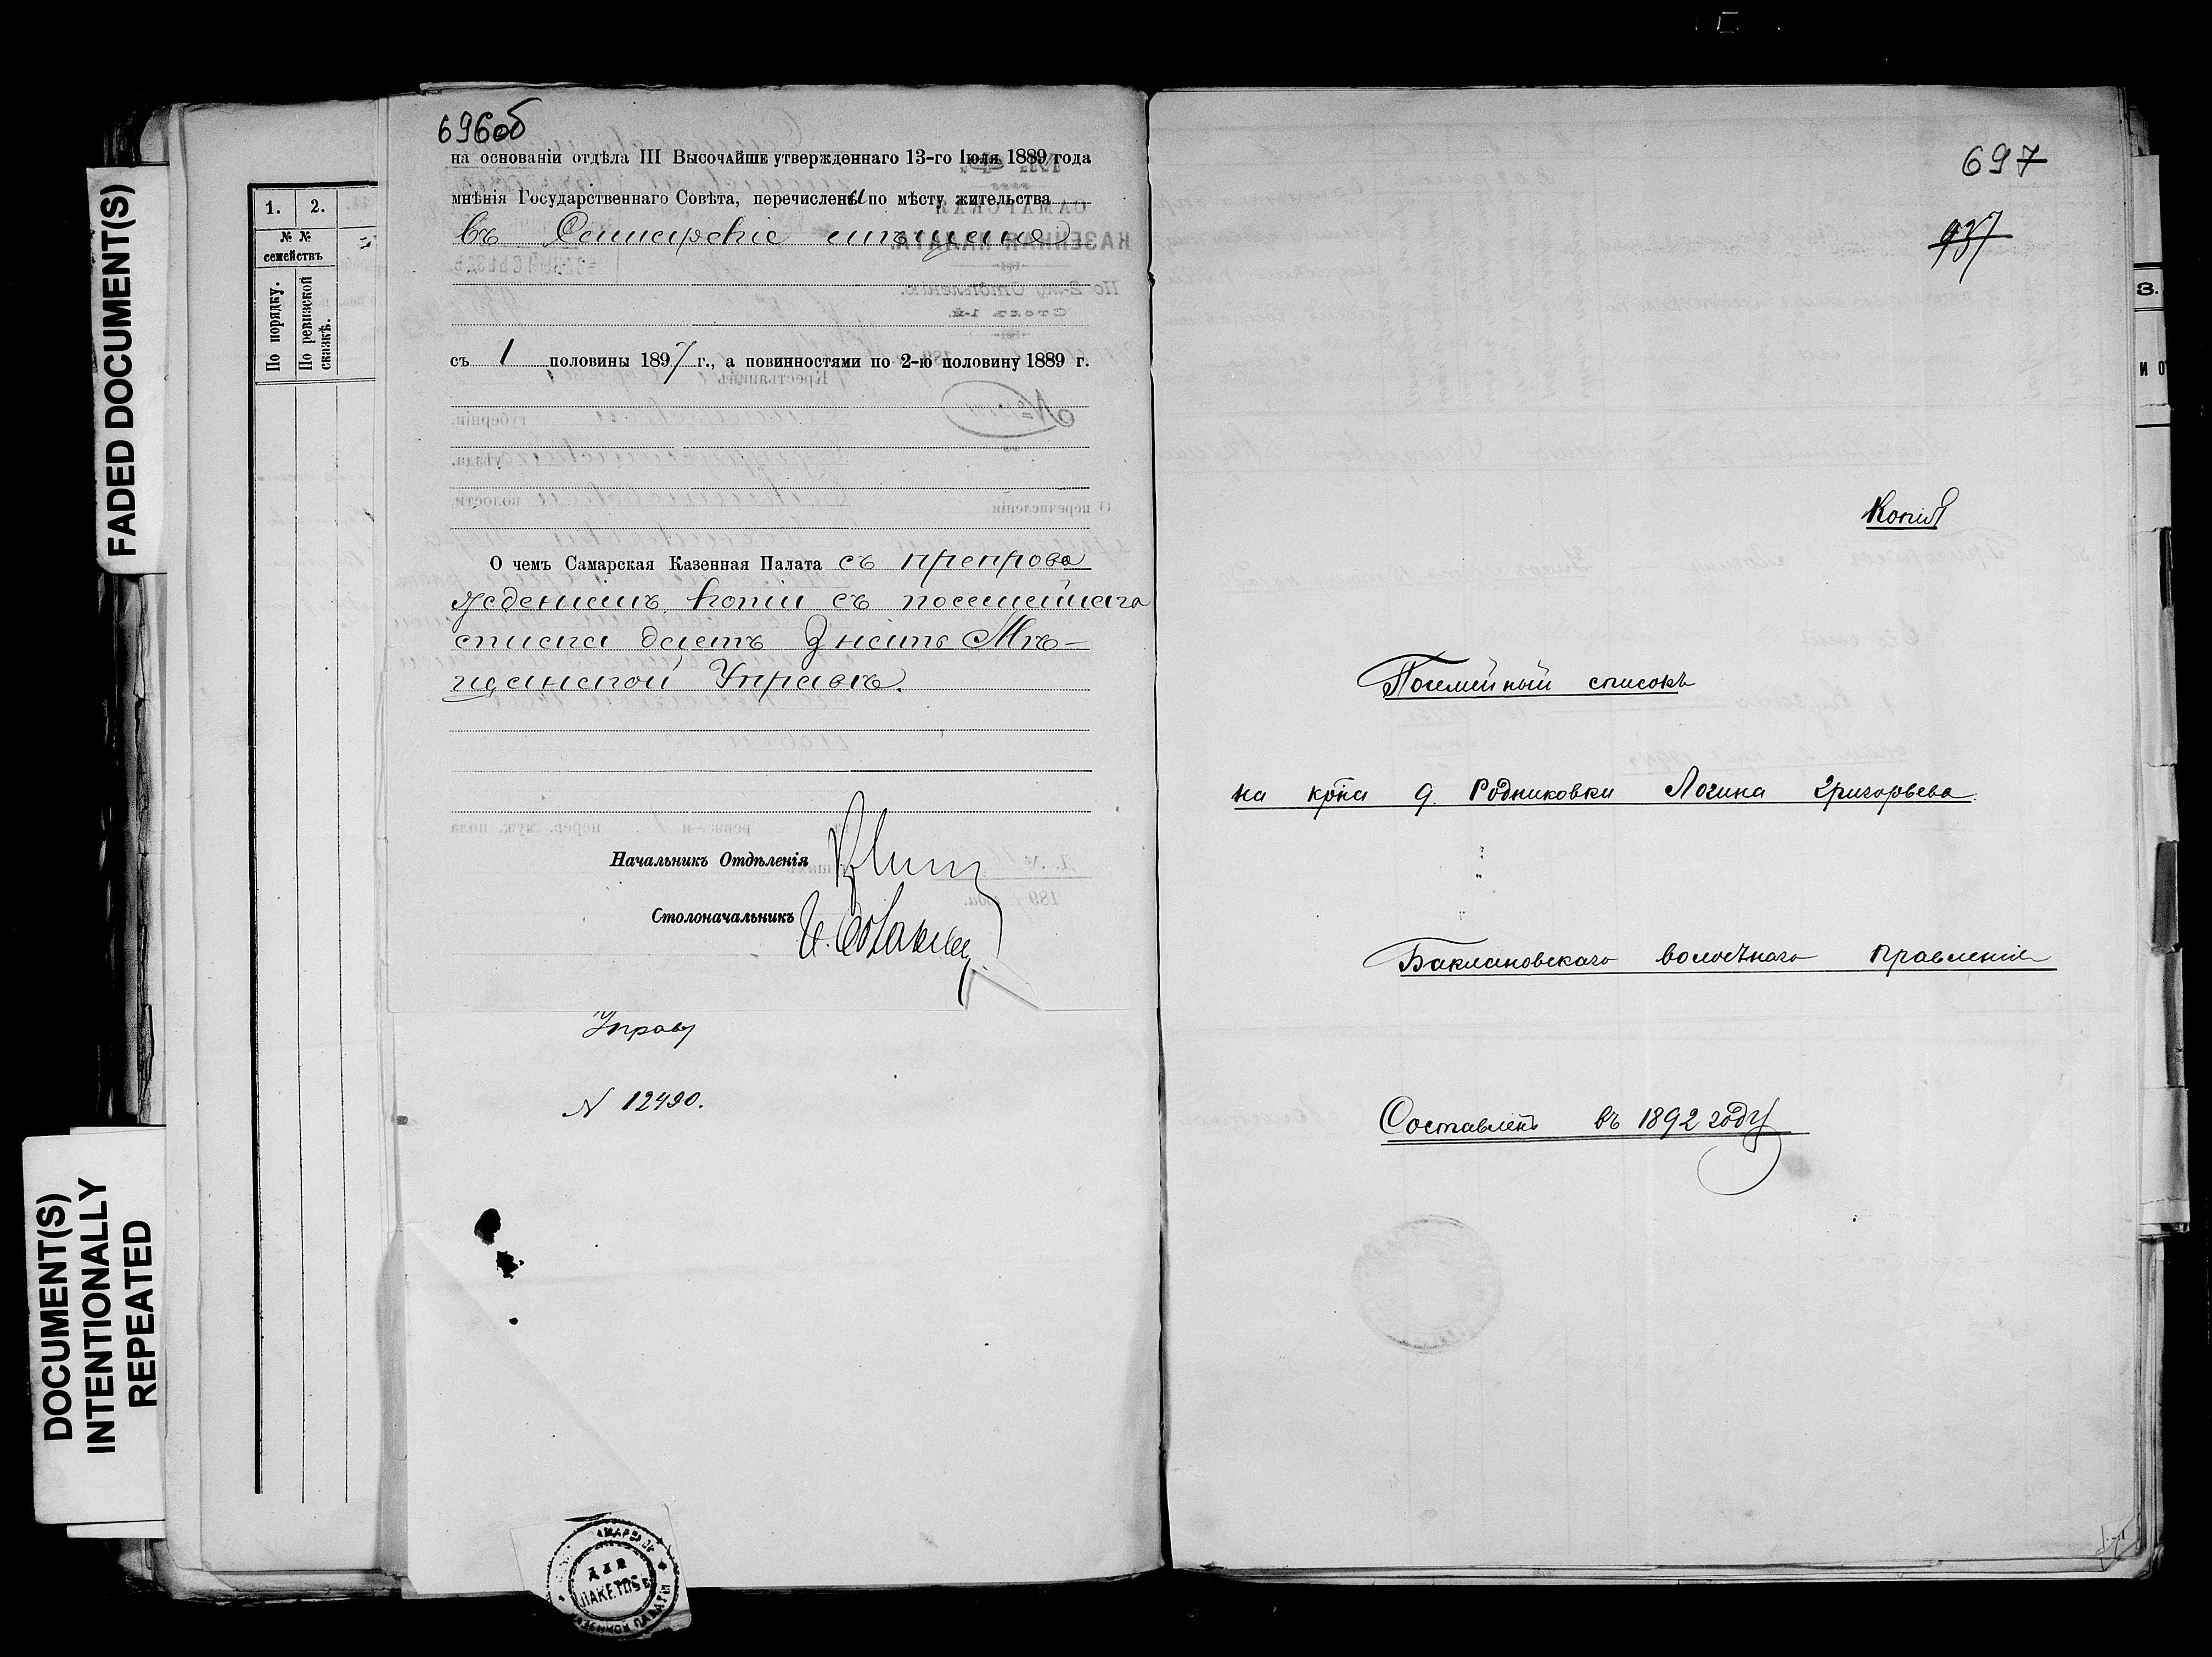 FADED DOCUMENT(S)
DOCUMENT(S)
INTENTIONALLY
REPEATED
1. 2.
№ №
семействъ
По порядку.
По ревизской
сказкѣ.
696об
на основаніи отдѣла III Высочайше утвержденнаго 13-го Іюля 1889 года
мнѣнія Государственнаго Совѣта, перечислены по мѣсту жительства
въ Самарскіе мѣщане
съ 1 половины 1897 г., а повинностями по 2-ю половину 1889 г.
О чемъ Самарская Казенная Палата съ препрово
жденіемъ копіи съ посемейнаго
списка даетъ знать Мѣ-
щанской Управѣ.
Начальникъ Отдѣленія
Столоначальникъ
Управу
N 12490.
ПАКЕТОВЪ
697
937
Копія
Посемейный списокъ
на крна д. Родниковки Логина Григорьева.
Баклановскаго волостнаго правленія
Составленъ въ 1892 году
3.